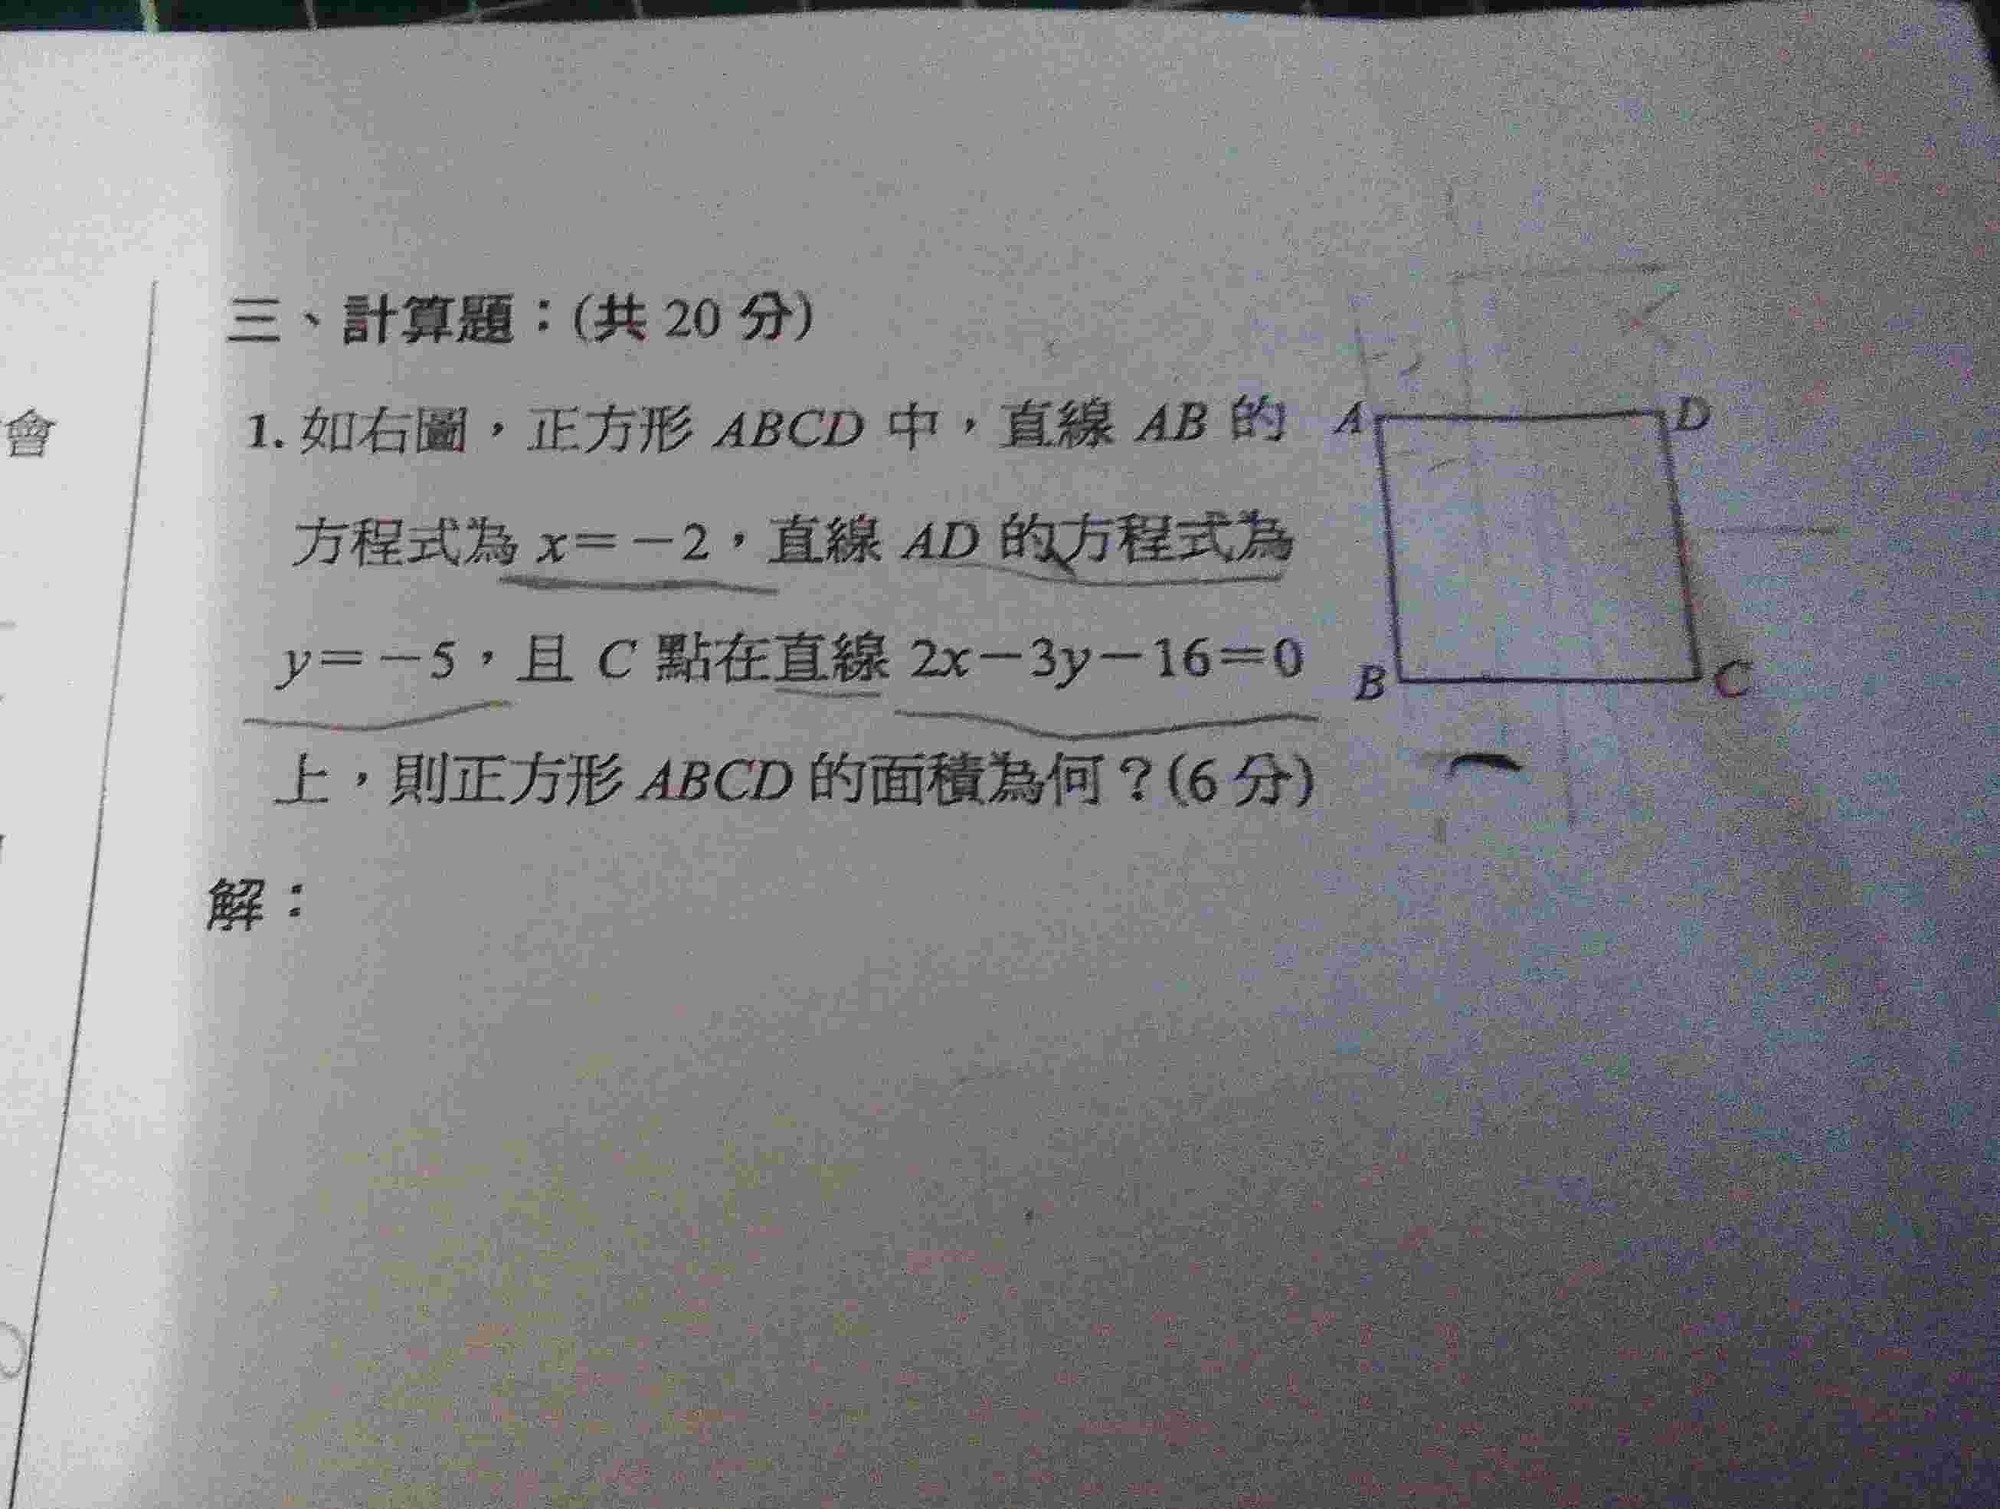 會
三、計算題：(共 20 分)
1. 如右圖，正方形 ABCD 中，直線 AB 的
方程式為 x＝－2，直線 AD 的方程式為
y＝－5，且 C 點在直線 2x－3y－16＝0
上，則正方形 ABCD 的面積為何？(6 分)
A D
B C
解：